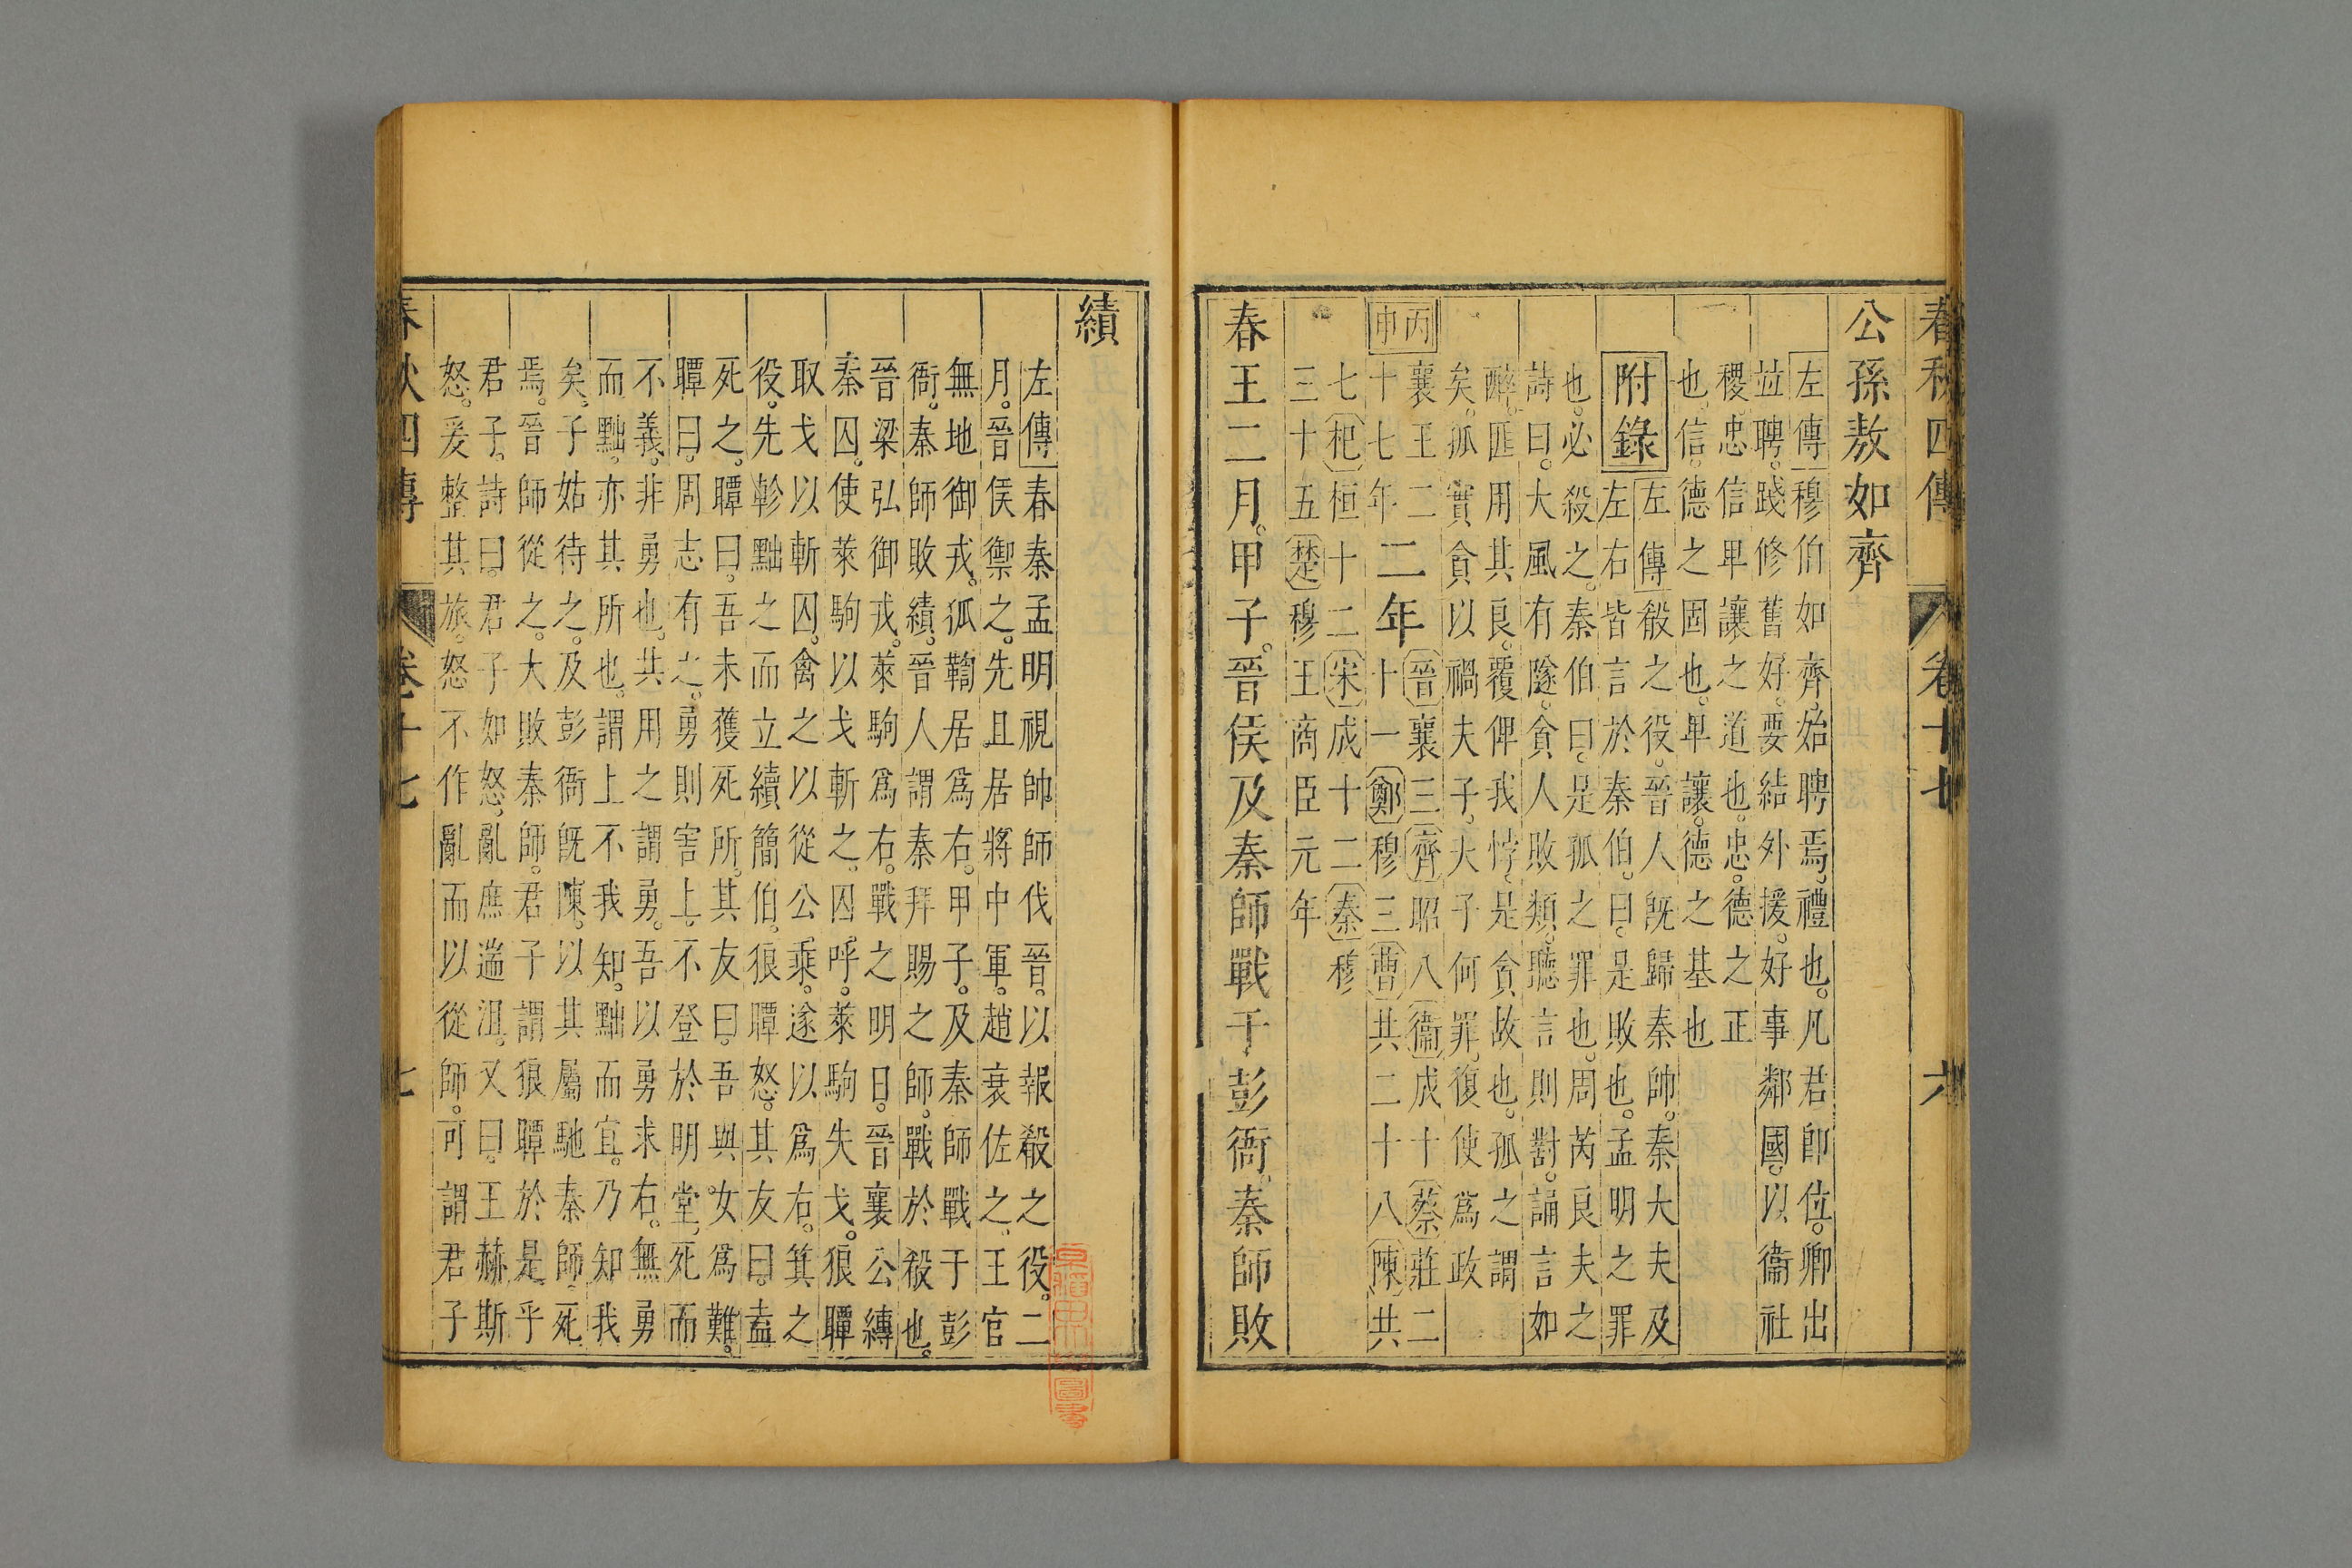 春秋四傳 卷十七 六
公孫敖如齊
左傳穆伯如齊始聘焉禮也。凡君即位。卿出
竝聘。踐修舊好。要結外援。好事鄰國。以衞社
稷。忠信卑讓之道也。忠。德之正
也。信。德之固也。卑讓。德之基也
附錄
左傳殽之役。晉人旣歸秦帥。秦大夫及
左右皆言於秦伯。曰。是敗也。孟明之罪
也。必殺之。秦伯曰。是孤之罪也。周芮良夫之
詩曰。大風有隧。貪人敗類。聽言則對。誦言如
醉。匪用其良。覆俾我悖。是貪故也。孤之謂
矣。孤實貪以禍夫子。夫子何罪。復使爲政
丙申
襄王二十七年二年
晉襄三齊昭八衞成十蔡莊二
十一鄭穆三曹共二十八陳共
七杞桓十二宋成十二秦穆
三十五楚穆王商臣元年
春王二月。甲子。晉侯及秦師戰于彭衙。秦師敗
績
左傳春秦孟明視帥師伐晉。以報殽之役。二
月。晉侯禦之。先且居將中軍。趙衰佐之。王官
無地御戎。狐鞫居爲右。甲子。及秦師戰于彭
衙。秦師敗績。晉人謂秦拜賜之師。戰於殽也。
晉梁弘御戎。萊駒爲右。戰之明日。晉襄公縛
秦囚。使萊駒以戈斬之。囚呼。萊駒失戈。狼瞫
取戈以斬囚。禽之以從公乘。遂以爲右。箕之
役。先軫黜之而立續簡伯。狼瞫怒。其友曰。盍
死之。瞫曰。吾未獲死所。其友曰。吾與女爲難。
瞫曰。周志有之。勇則害上。不登於明堂。死而
不義。非勇也。共用之謂勇。吾以勇求右。無勇
而黜。亦其所也。謂上不我知。黜而宜。乃知我
矣。子姑待之。及彭衙旣陳。以其屬馳秦師。死
焉。晉師從之。大敗秦師。君子謂狼瞫於是乎
君子。詩曰。君子如怒。亂庶遄沮。又曰。王赫斯
怒。爰整其旅。怒不作亂而以從師。可謂君子
春秋四傳 卷十七 七